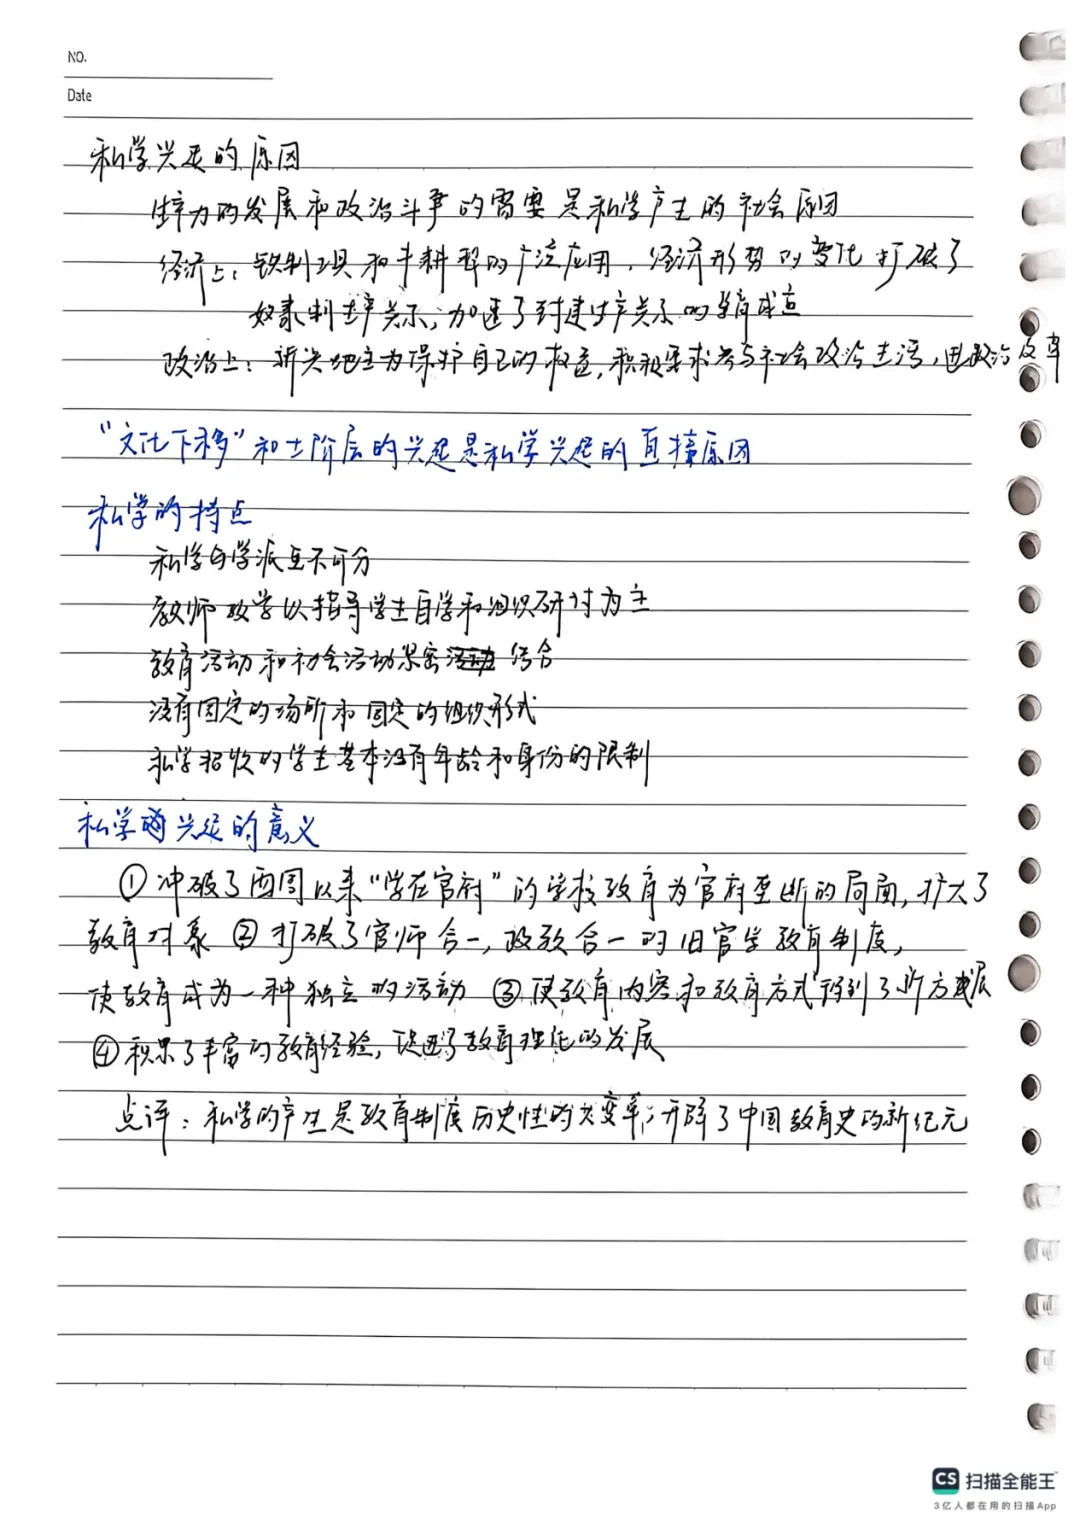 NO.
Date
私学兴起的原因
生产力的发展和政治斗争的需要是私学产生的社会原因
经济上：铁制工具和牛耕犁的广泛应用，经济形势的变化打破了
奴隶制生产关系，加速了封建生产关系的孕育成长
政治上：新兴地主为保护自己的权益，积极要求参与社会政治生活，进政治改革
“文化下移”和士阶层的兴起是私学兴起的直接原因
私学的特点
私学与学派互不可分
教师教学以指导学生自学和组织研讨为主
教育活动和社会活动紧密结合
没有固定的场所和固定的组织形式
私学招收的学生基本没有年龄和身份的限制
私学兴起的意义
①冲破了西周以来“学在官府”的学校教育为官府垄断的局面，扩大了
教育对象 ②打破了官师合一，政教合一的旧官学教育制度，
使教育成为一种独立的活动 ③使教育内容和教育方式得到了新方发展
④积累了丰富的教育经验，促进了教育理论的发展
点评：私学的产生是教育制度历史性的大变革，开降了中国教育史的新纪元
CS 扫描全能王
3亿人都在用的扫描App